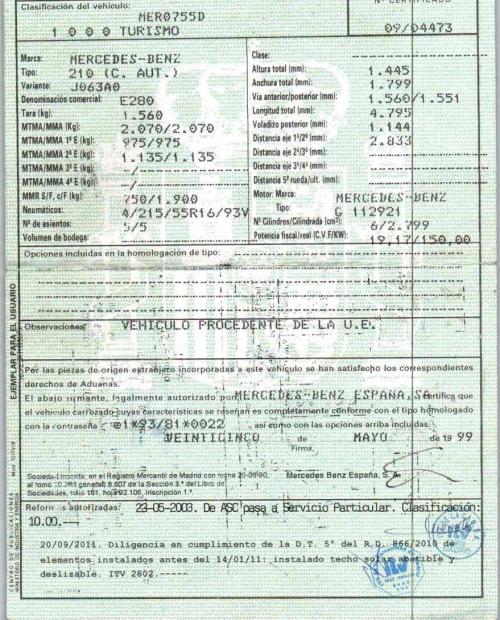 Clasificación del vehículo:
Nº CERTIFICADO
MER0755D
1 0 0 0 TURISMO
09/04473
Marca: MERCEDES-BENZ
Tipo: 210 (C. AUT.)
Variante: J063A0
Denominación comercial: E280
Tara (kg): 1.560
MTMA/MMA (Kg): 2.070/2.070
MTMA/MMA 1º E (kg): 975/975
MTMA/MMA 2º E (kg): 1.135/1.135
MTMA/MMA 3º E (kg): -/-
MTMA/MMA 4º E (kg): -/-
MMR S/F, c/F (kg): 750/1.900
Neumáticos: 4/215/55R16/93V
Nº de asientos: 5/5
Volumen de bodega:
Clase:
Altura total (mm): 1.445
Anchura total (mm): 1.799
Vía anterior/posterior (mm): 1.560/1.551
Longitud total (mm): 4.795
Voladizo posterior (mm): 1.144
Distancia eje 1º/2º (mm): 2.833
Distancia eje 2º/3º (mm):
Distancia eje 3º/4º (mm):
Distancia 5ª rueda/ult. (mm):
Motor: Marca: MERCEDES-BENZ
Tipo: G 112921
Nº Cilindros/Cilindrada (cm³): 6/2.799
Potencia fiscal/real (C.V.F/KW): 19,17/150,00
Opciones incluidas en la homologación de tipo:
Observaciones: VEHICULO PROCEDENTE DE LA U.E.
EJEMPLAR PARA EL USUARIO
Por las piezas de origen extranjero incorporadas a este vehículo se han satisfecho los correspondientes
derechos de Aduanas.
El abajo firmante, legalmente autorizado por MERCEDES-BENZ ESPAÑA, SA certifica que
el vehículo carrozado cuyas características se reseñan es completamente conforme con el tipo homologado
con la contraseña e1*93/81*0022 así como con las opciones arriba incluidas.
VEINTICINCO de MAYO de 19 99
Firma,
Mercedes Benz España, S.A.
Sociedad inscrita en el Registro Mercantil de Madrid con fecha
general 8.807 de la Sección 3ª del Libro de
Sociedades, folio 161, hoja 92.106, inscripción 1ª.
Reformas autorizadas: 23-05-2003. De ASC pasa a Servicio Particular. Clasificación:
10.00.---
20/09/2011. Diligencia en cumplimiento de la D.T. 5ª del R.D. 866/2010 de
elementos instalados antes del 14/01/11: instalado techo solar abatible y
deslizable. ITV 2802.-----
CENTRO DE PUBLICACIONES
MINISTERIO DE INDUSTRIA Y ENERGIA